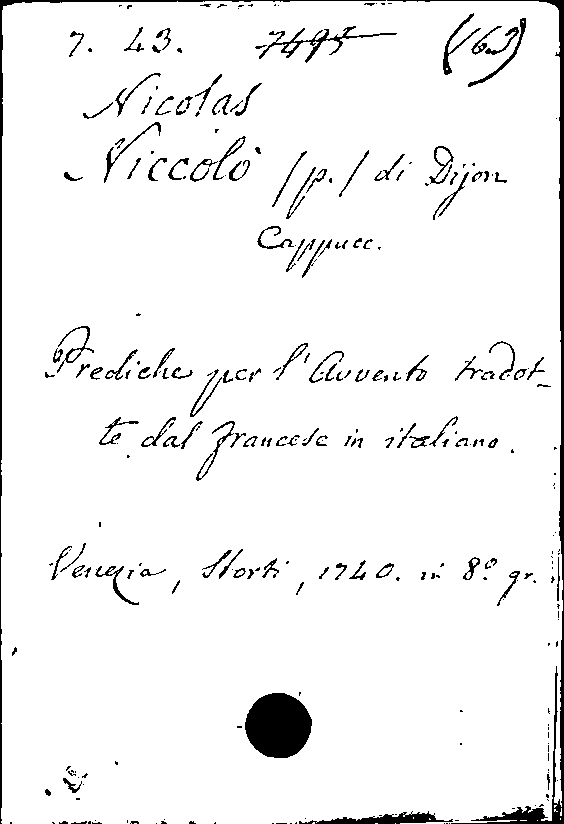 7. 43. 7495 (163)
Nicolas
Niccolò /p./ di Dijon
Cappucc.
Prediche per l'Avvento tradot-
te dal francese in italiano.
Venezia, Storti, 1740. in 8.º gr.